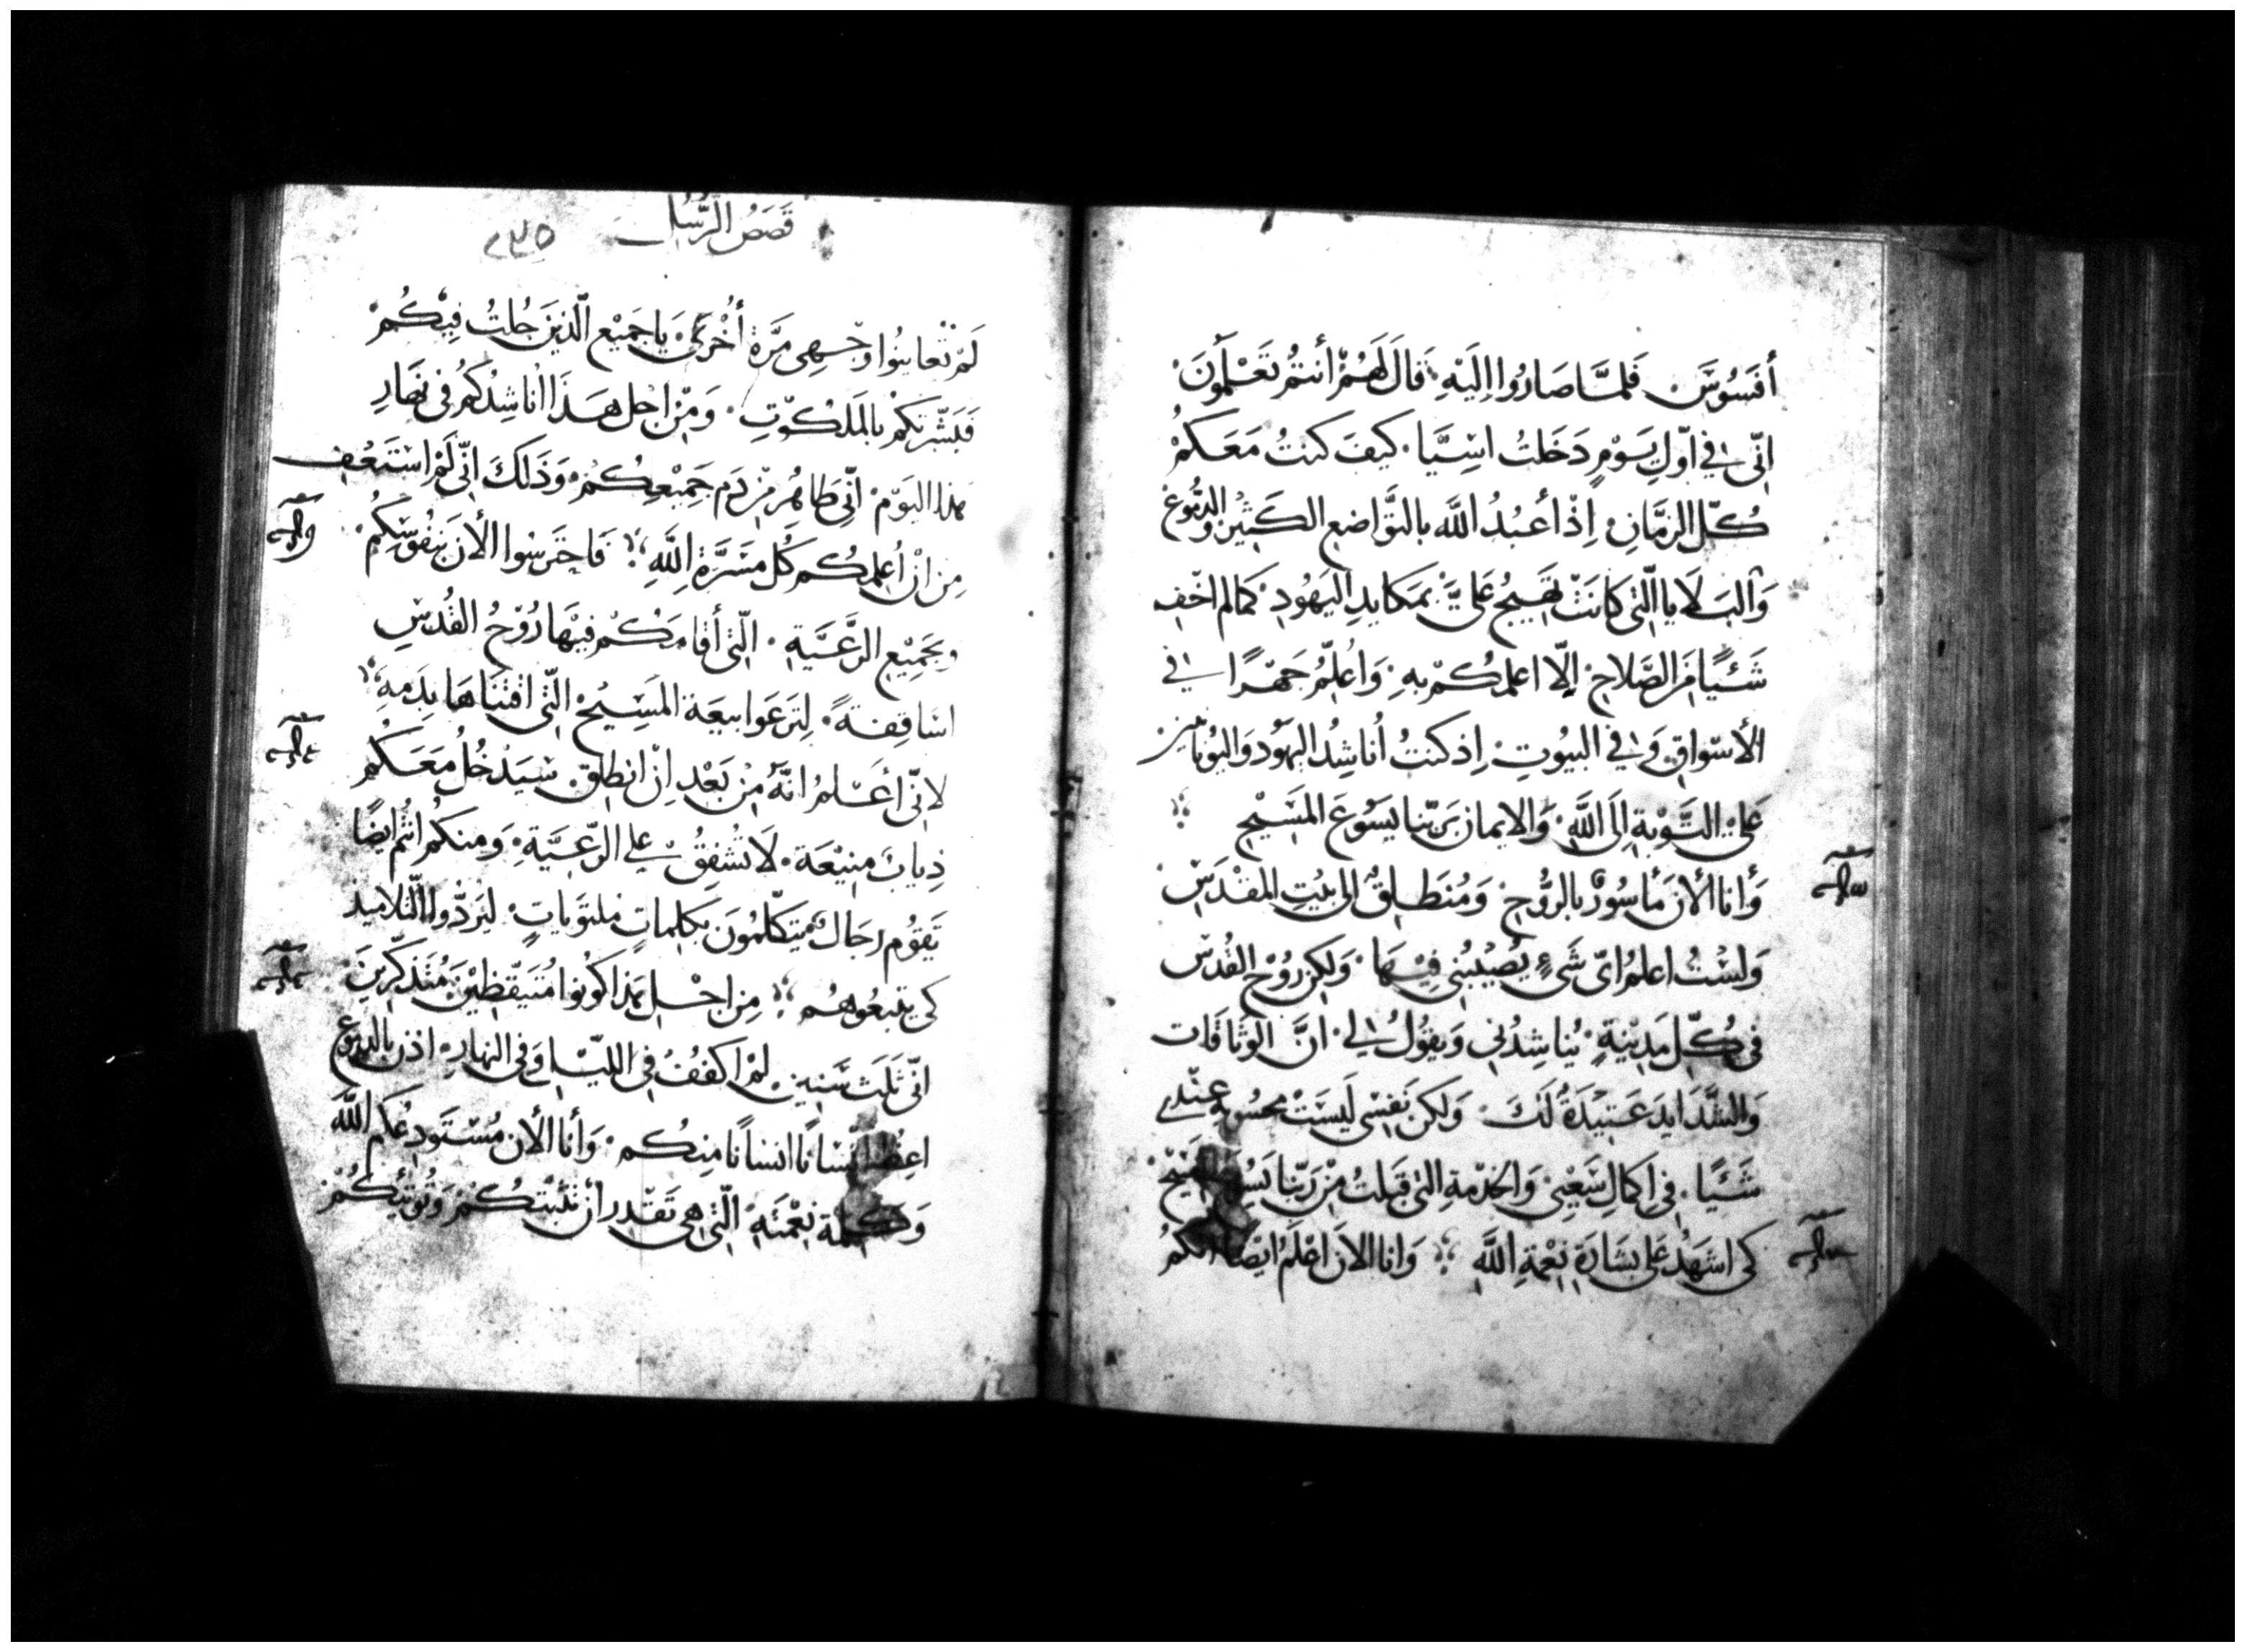 أفَسُوسَ. فَلمَّا صَارُوا إليَهِ. قالَ لَهُمْ أنتُم تَعْلمُونَ
انّى فى اوّلِ يَوْمٍ دَخَلتُ اسِيَّا. كيفَ كنتُ مَعَكمُ
كُلّ الزمَّانِ. اِذْ اَعبُدُ اللَّه بالتوَّاضع الكَثيْرِ والدُّموُع
وَالبَلَايا الّتى كانَتْ تَهَيجُ عَلىَّ بمَكايدِ اليَهُودِ. كمالم اخْفِ
شَئيًا مَنَ الصَّلاحِ. إلّا اعلمكُم بهِ. وَاُعلِمُ جَهْرًا فى
الأسّواقِ وَفى البيُوتِ. اِذ كنتُ اُناشِدُ اليهُود وَاليُونانيين
عَلى التَّوْبةِ إلَى اللَّهِ. وَالايمان برَبّنا يَسُوعَ المَسَيْحِ
وَأنا الأنَ مَأسُورٌ بالرُّوْحِ. وَمُنطَلِقٌ الى بيْت المقْدَسِ
وَلسْتُ اعلمُ اىّ شَىٍء يُصْيْبُنى فِيْهَا. وَلكِن رُوْح القُدْس
فى كُلّ مَدِيْنةٍ. يُناشِدُنى وَيقُولُ لى. انَّ الوثاقات
وَالشَّدَايدَ عَتيْدَةٌ لَكَ. وَلكن نَفسِى لَيسَتْ محسُوبه عِنْدى
شَئيًا. فى اكمالِ سَعْيى وَالخدْمةِ التى قَبَلتُ مِنْ رَبّنا يَسُوع المَسيْحْ
كى اشهَدُ عَلى بشارَة نِعْمةِ اللَّهِ وَانا الانَ اعْلَمُ ايضًا انكمُ
قَصَصُ الرُّسُل
٢٧٥
لَمْ تُعاينُوا وَجْهِى مَرَّة أُخْرَى. يَا جَمَيْع الّذينَ جُلتُ فِيْكُمْ
فَبَشّرتكمْ بالمَلكوُتِ. وَمِنْ اجْل هَذا اُناشِدُكمُ فى نَهَارِ
هذا اليَوْمْ. انّى طاهُر مِنْ دَمِ جَمْيعِكُمْ. وَذَلكَ انّى لَمْ اسْتَعْفِ
مِن انْ اُعلمكُم كُل مسَرَّة اللَّهِ فَاحتَرسُوا الأنَ بنفُوسِكمُ.
وبجَمِيْعِ الرَّعَيَّةِ. الّتى أقامَكُمْ فيْهَا رُوْحُ القُدْسِ
اسَاقِفةً. لِتَرعَوا بيعَة المَسِيْحْ الّتى اقتناهَا بِدَمهِ
لانّى اَعَلمُ انّهُ مِنْ بَعْدِ اِنْ انطلِق. سَيَدْخُلُ مَعَكُم
ذِيابٌ منيْعَة. لَا تُشْفِقُ على الرّعيَّةِ. وَمنكمُ انتُم ايضًا
يَقوُم رجَالٌ مُتكلّمُونَ بكلِماتٍ ملتوَياتٍ. ليَردُّوا التّلاميذ
كى يتبعُوهُم مِن اجْل هَذا كوُنوا مُتَيقّظِيْنَ مُتَذكّرينَ
انّى ثَلثَ سَنين. لمْ اكفُفْ فى الليْل وَفى النهارِ. اذن بالدموع
اعِظُ انْسانًا انسانًا منِكُم. وَأنا الأن مُسْتَودِعُكم اللَّه
وَكَلمة نِعْمتهِ الّتى هى تَقْدر أنْ تثبّتكُمْ وَتُؤتيْكُمْ